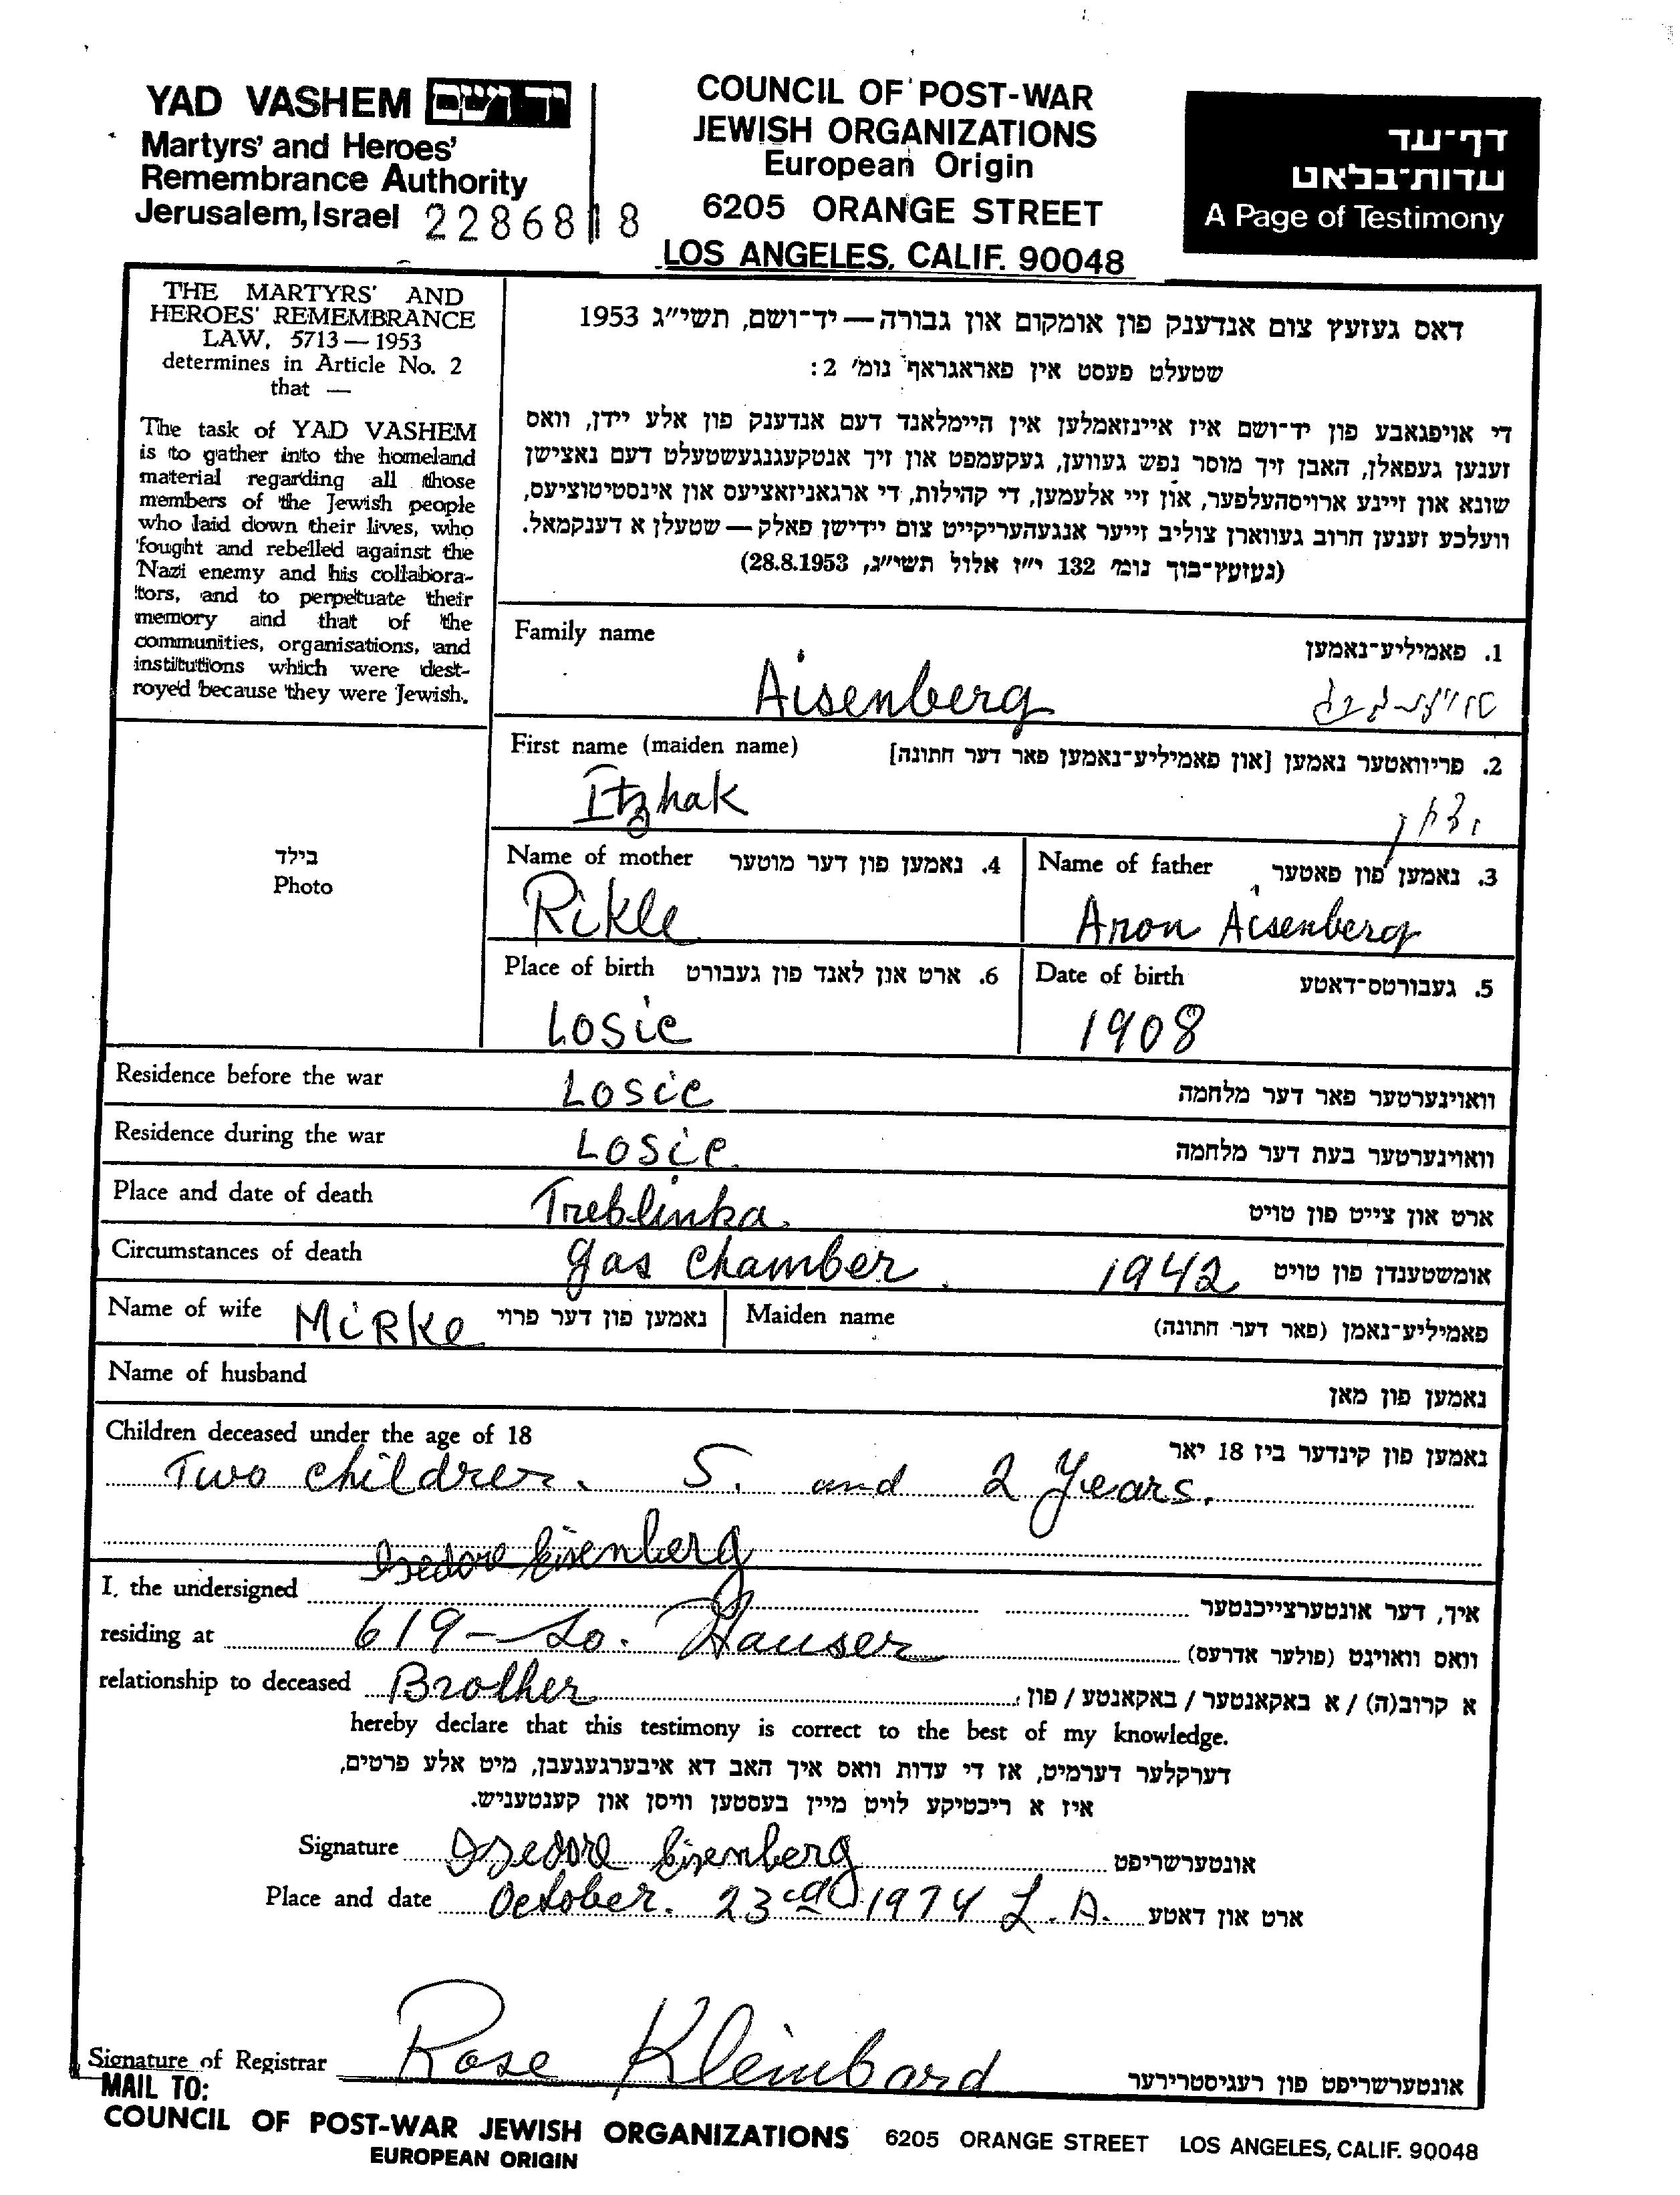 YAD VASHEM יד ושם
Martyrs' and Heroes'
Remembrance Authority
Jerusalem, Israel 2286818
COUNCIL OF POST-WAR
JEWISH ORGANIZATIONS
European Origin
6205 ORANGE STREET
LOS ANGELES, CALIF. 90048
דף-עד
עדות-בלאט
A Page of Testimony
THE MARTYRS' AND
HEROES' REMEMBRANCE
LAW, 5713 — 1953
determines in Article No. 2
that —
The task of YAD VASHEM
is to gather into the homeland
material regarding all those
members of the Jewish people
who laid down their lives, who
fought and rebelled against the
Nazi enemy and his collabora-
tors, and to perpetuate their
memory and that of the
communities, organisations, and
institutions which were dest-
royed because they were Jewish.
דאס געזעץ צום אנדענק פון אומקום און גבורה — יד-ושם, תשי״ג 1953
שטעלט פעסט אין פאראגראף נומ׳ 2:
די אויפגאבע פון יד-ושם איז איינזאמלען אין היימלאנד דעם אנדענק פון אלע יידן, וואס
זענען געפאלן, האבן זיך מוסר נפש געווען, געקעמפט און זיך אנטקעגנגעשטעלט דעם נאצישן
שונא און זיינע ארויסהעלפער, און זיי אלעמען, די קהילות, די ארגאניזאציעס און אינסטיטוציעס,
וועלכע זענען חרוב געווארן צוליב זייער אנגעהעריקייט צום יידישן פאלק — שטעלן א דענקמאל.
(געזעץ-בוך נומ׳ 132 י״ז אלול תשי״ג, 28.8.1953)
Family name 1. פאמיליע-נאמען
Aisenberg
First name (maiden name) 2. פריוואטער נאמען [און פאמיליע-נאמען פאר דער חתונה]
Itzhak יצחק
בילד
Photo
Name of mother 4. נאמען פון דער מוטער
Rikle
Name of father 3. נאמען פון פאטער
Aron Aisenberg
Place of birth 6. ארט און לאנד פון געבורט
Losic
Date of birth 5. געבורטס-דאטע
1908
Residence before the war Losic וואוינערטער פאר דער מלחמה
Residence during the war Losic וואוינערטער בעת דער מלחמה
Place and date of death Treblinka. ארט און צייט פון טויט
Circumstances of death gas chamber. 1942 אומשטענדן פון טויט
Name of wife Mirke נאמען פון דער פרוי Maiden name פאמיליע-נאמן (פאר דער חתונה)
Name of husband נאמען פון מאן
Children deceased under the age of 18 נאמען פון קינדער ביז 18 יאר
Two children. 5. and 2 Years.
Isedore Eisenberg
I, the undersigned איך, דער אונטערצייכנטער
residing at 619 - So. Hauser וואס וואוינט (פולער אדרעס)
relationship to deceased Brother א קרוב(ה) / א באקאנטער / באקאנטע / פון
hereby declare that this testimony is correct to the best of my knowledge.
דערקלער דערמיט, אז די עדות וואס איך האב דא איבערגעגעבן, מיט אלע פרטים,
איז א ריכטיקע לויט מיין בעסטען וויסן און קענטעניש.
Signature Isedore Eisenberg אונטערשריפט
Place and date October. 23 1974 L.A. ארט און דאטע
Signature of Registrar Rose Kleinbard אונטערשריפט פון רעגיסטרירער
MAIL TO:
COUNCIL OF POST-WAR JEWISH ORGANIZATIONS 6205 ORANGE STREET LOS ANGELES, CALIF. 90048
EUROPEAN ORIGIN